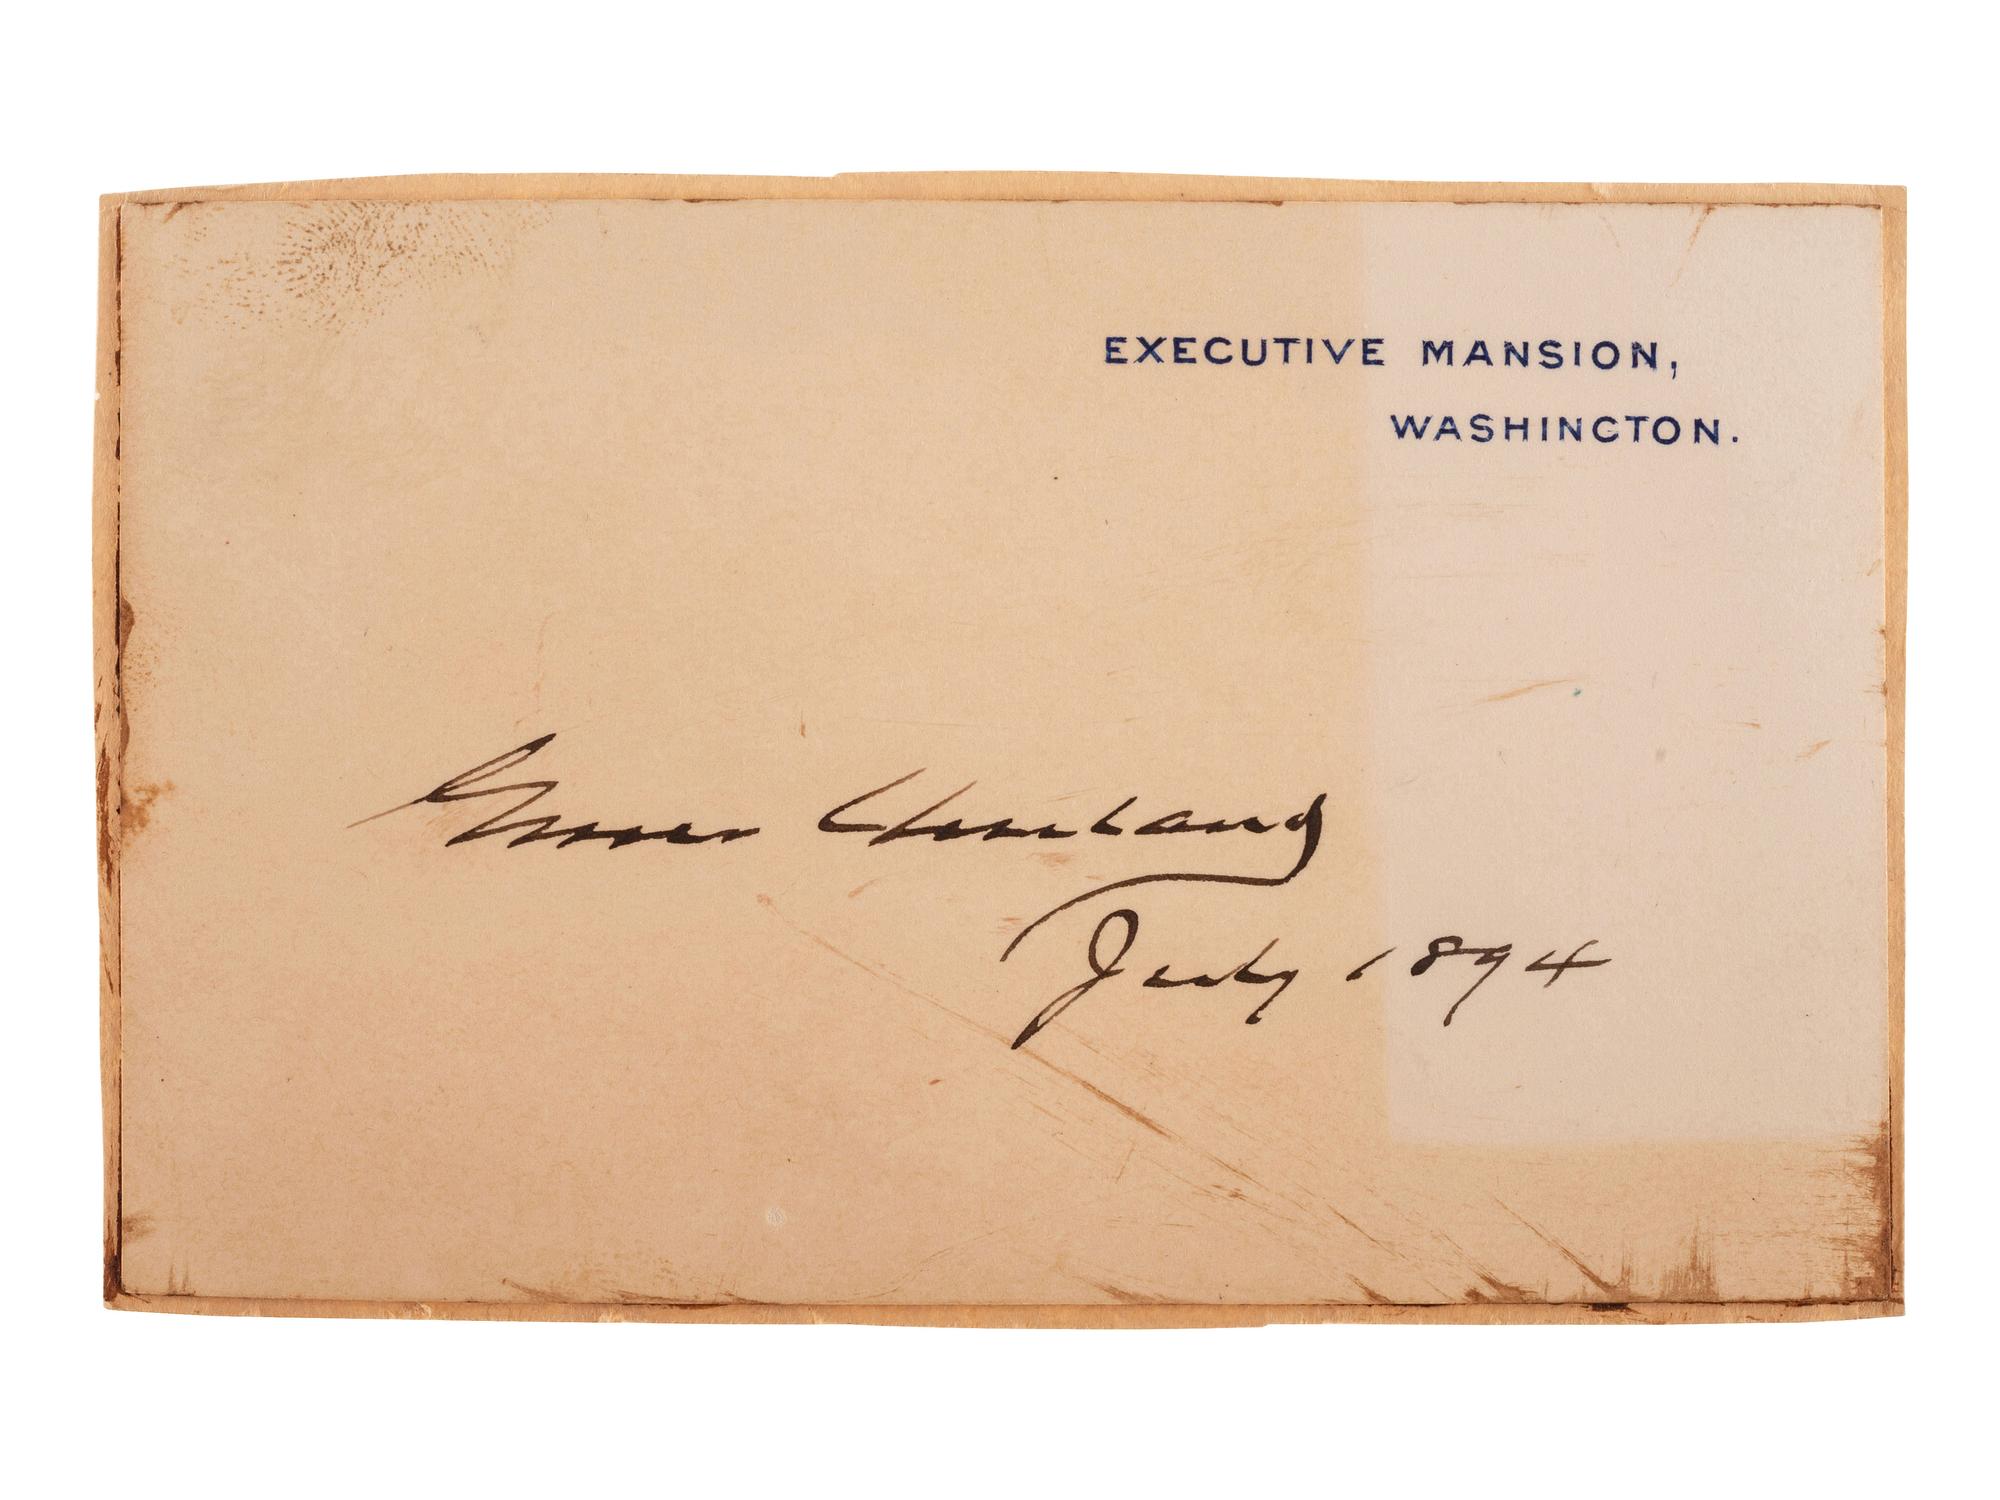 EXECUTIVE MANSION,
WASHINGTON.
Grover Cleveland
July 1894